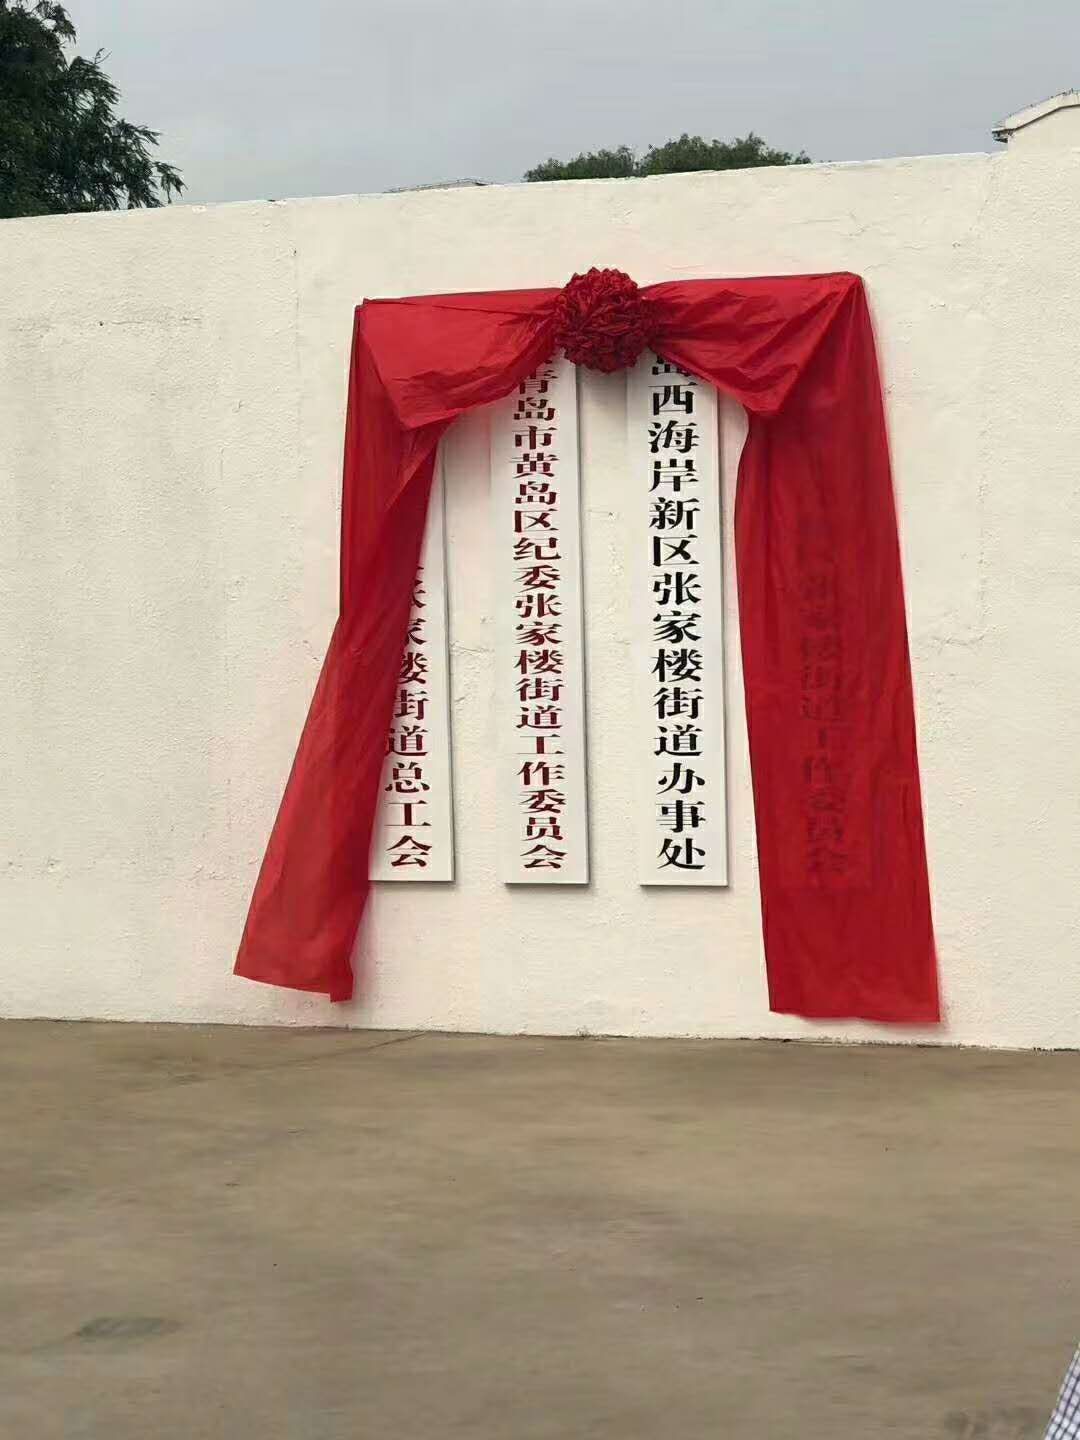 张家楼街道总工会
青岛市黄岛区纪委张家楼街道工作委员会
岛西海岸新区张家楼街道办事处
街道工作委员会